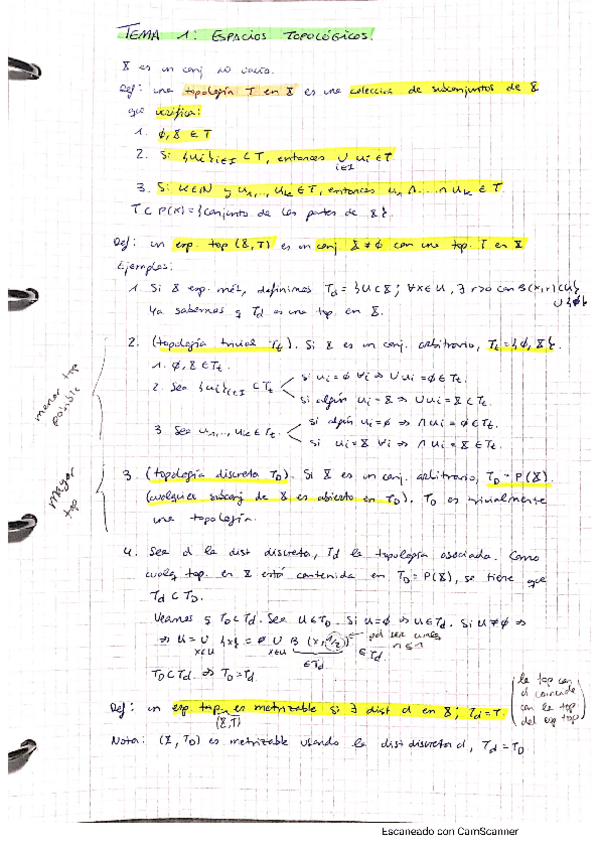 TEMA 1: ESPACIOS TOPOLÓGICOS.
X es un conj no vacío.
Def: una topología T en X es una colección de subconjuntos de X
que verifica:
1. ∅, X ∈ T
2. Si {Ui}i∈I ⊂ T, entonces ∪ Ui ∈ T
i∈I
3. Si K∈N y U1,..., UK ∈ T, entonces U1 ∩ ... ∩ UK ∈ T
T ⊂ P(X) = {conjunto de las partes de X}.
Def: un esp. top (X,T) es un conj X ≠ ∅ con una top. T en X
Ejemplos:
1. Si X esp. mét, definimos Td = {U⊂X; ∀x∈U, ∃ r>0 con B(x,r)⊂U}
∪{∅}
Ya sabemos q Td es una top. en X.
2. (topología trivial Tt). Si X es un conj. arbitrario, Tt={∅, X}.
1. ∅, X ∈ Tt.
2. Sea {Ui}i∈I ⊂ Tt
si Ui = ∅ ∀i ⇒ ∪Ui = ∅ ∈ Tt.
si algún Ui = X ⇒ ∪Ui = X ∈ Tt.
3. Sea U1,..., UK ∈ Tt
si algún Ui = ∅ ⇒ ∩Ui = ∅ ∈ Tt.
si Ui = X ∀i ⇒ ∩Ui = X ∈ Tt.
menor top
posible
3. (topología discreta TD). Si X es un conj. arbitrario, TD = P(X).
(cualquier subconj de X es abierto en TD). TD es trivialmente
una topología.
mayor
top
4. Sea d la dist discreta, Td la topología asociada. Como
cualq top. en X está contenida en TD = P(X), se tiene que
Td ⊂ TD.
Veamos q TD ⊂ Td. Sea U∈TD. Si U=∅ ⇒ U∈Td. Si U≠∅ ⇒
⇒ U = ∪ {x} = ∪ B (x, 1/2) ∈ Td.
x∈U x∈U ∈Td
TD ⊂ Td ⇒ TD = Td.
Def: un esp. top. es metrizable si ∃ dist d en X; Td = T.
(X,T)
la top con
d coincide
con la top
del esp top
Nota: (X, TD) es metrizable usando la dist discreta d, Td = TD
Escaneado con CamScanner